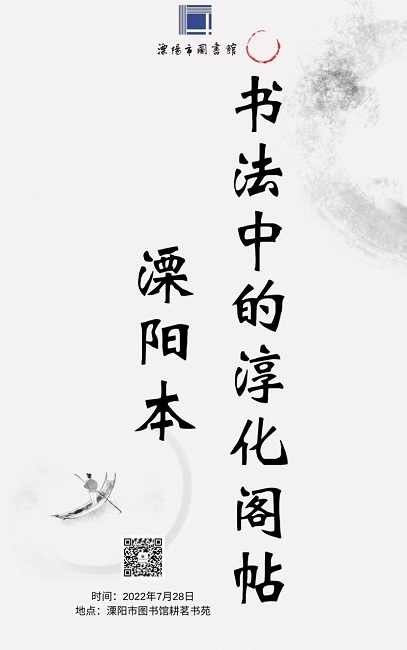 溧陽市圖書館
书法中的淳化阁帖
溧阳本
时间：2022年7月28日
地点：溧阳市图书馆耕茗书苑